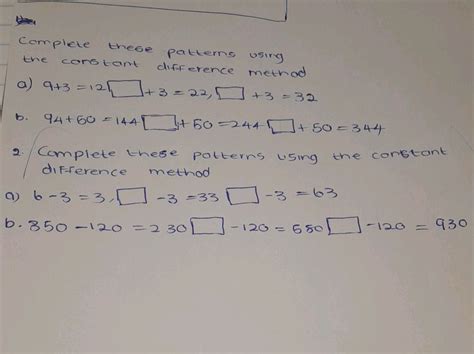 Complete these patterns using
the constant difference method
a) 9+3=12 □ +3=22, □ +3=32
b. 94+50=144 □ +50=244 □ +50=344
2. Complete these patterns using the constant
difference method
a) 6-3=3, □ -3=33 □ -3=63
b. 350-120=230 □ -120=580 □ -120=930